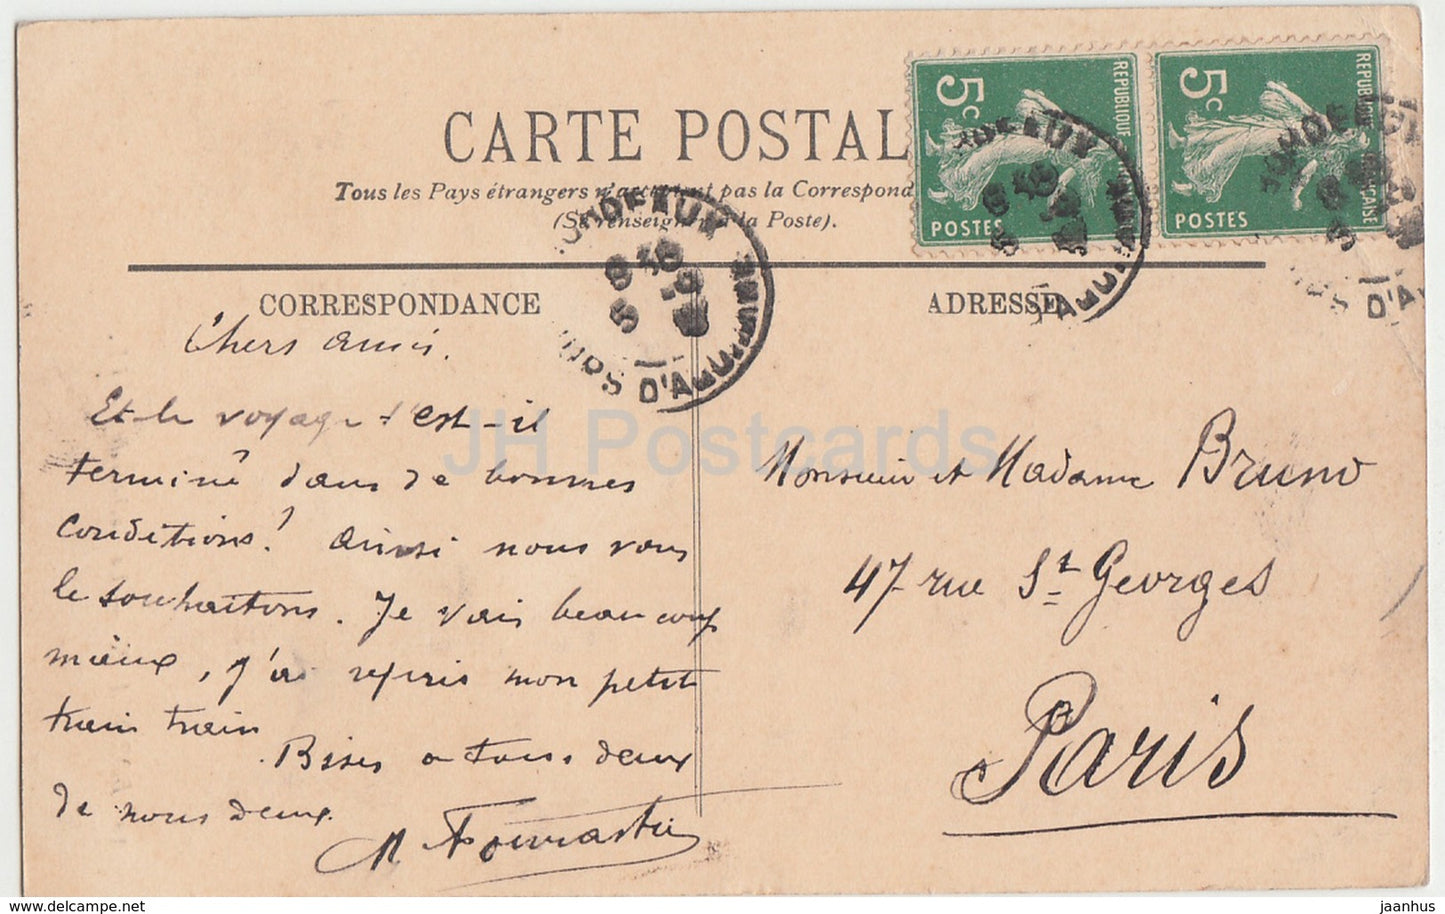 CARTE POSTALE
Tous les Pays étrangers n'acceptent pas la Correspond
(Se renseigner à la Poste).
5c
REPUBLIQUE
POSTES
5c
REPUBLIQUE FRANÇAISE
POSTES
BORDEAUX
COURS D'A
CORRESPONDANCE
ADRESSE
Chers amis.
Et le voyage s'est-il
terminé dans de bonnes
conditions? Ainsi nous vous
le souhaitons. Je vais beaucoup
mieux, j'ai repris mon petit
train train
Bises a tous deux
de nous deux.
Monsieur et Madame Bruno
47 rue St Georges
Paris
JH Postcards
delcampe.net
jaanhus